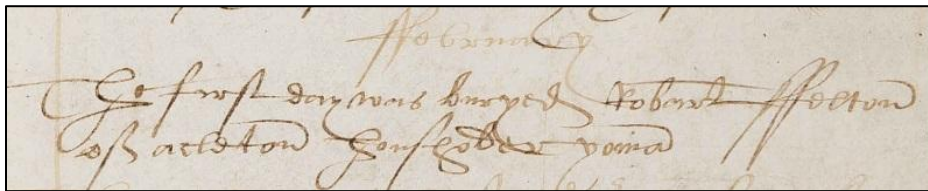 ffebruary
The first day was buryed Robart ffelton
off acleton houshoder